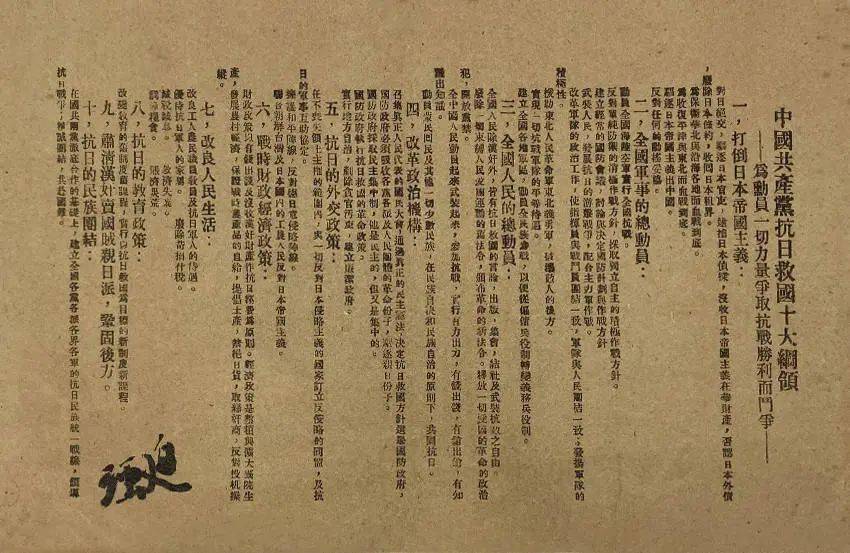 中國共產黨抗日救國十大綱領
——爲動員一切力量爭取抗戰勝利而鬥爭——
一，打倒日本帝國主義：
對日絕交，驅逐日本官吏，逮捕日本偵探，沒收日本帝國主義在華財產，否認日本外債
，廢除日本條約，收回日本租界。
爲保衛華北與沿海各地而血戰到底。
爲收復平津與東北而血戰到底。
驅逐日本帝國主義出中國。
反對任何動搖妥協。
二，全國軍事的總動員：
動員全國海陸空軍實行全國抗戰。
反對單純防禦的消極作戰方針，採取獨立自主的積極作戰方針。
建立經常的國防會議，討論與決定國防計劃與作戰方針
武裝人民，發展抗日的游擊戰爭，配合主力軍作戰
改革軍隊的政治工作，使指揮員與戰鬥員團結一致，軍隊與人民團結一致；發揚軍隊的
積極性。
援助東北人民革命軍東北義勇軍，破壞敵人的後方。
實現一切抗戰軍隊的平等待遇。
建立全國各地軍區，動員全民族參戰，以便從傭僱兵役制轉變義務兵役制。
三，全國人民的總動員：
全國人民除漢奸外，皆有抗日救國的言論，出版，集會，結社及武裝抗敵之自由。
廢除一切束縛人民愛國運動的舊法令，頒布革命的新法令。釋放一切愛國的革命的政治
犯，開放黨禁。
全中國人民動員起來武裝起來，參加抗戰，實行有力出力，有錢出錢，有鎗出鎗，有知
識出知識。
動員蒙民回民及其他一切少數民族，在民族自決和民族自治的原則下，共同抗日。
四，改革政治機構：
召集眞正人民代表的國民大會，通過眞正的民主憲法，決定抗日救國方針選舉國防政府，
國防政府必須吸收各黨各派及人民團體的革命份子，驅逐親日份子。
國防政府採取民主集中制，他是民主的，但又是集中的。
國防政府執行抗日救國的革命政策。
實行地方自治，剷除貪官污吏，建立廉潔政府。
五，抗日的外交政策：
在不喪失領土主權的範圍內，與一切反對日本侵略主義的國家訂立反侵略的同盟，及抗
日的軍事互助協定。
擁護和平陣線，反對德日意侵略陣線。
聯合朝鮮台灣及日本國內的工農人民反對日本帝國主義。
六，戰時財政經濟政策：
財政政策以有錢出錢及沒收漢奸財產作抗日經費爲原則。經濟政策是整頓與擴大國防生
產，發展農村經濟，保證戰時農產品的自給，提倡土產，禁絕日貨，取締奸商，反對投機操
縱。
七，改良人民生活：
改良工人農民職員教員及抗日軍人的待遇。
優待抗日軍人的家屬。
廢除苛捐什稅。
減租減息。
救濟失業。
調節糧食。
賑濟災荒。
八，抗日的教育政策：
改變教育的舊制度舊課程，實行以抗日救國爲目標的新制度新課程。
九，肅清漢奸賣國賊親日派，鞏固後方。
十，抗日的民族團結：
在國共兩黨澈底合作的基礎上，建立全國各黨各派各界各軍的抗日民族統一戰線，領導
抗日戰爭，精誠團結，共赴國難。